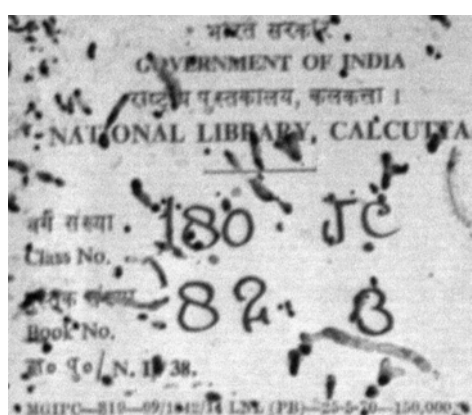 भारत सरकार
GOVERNMENT OF INDIA
राष्ट्रीय पुस्तकालय, कलकत्ता ।
NATIONAL LIBRARY, CALCUTTA
वर्ग संख्या 180 JC
Class No.
पुस्तक संख्या 82.
Book No.
रा० पु०/ N. L. 38.
MGIPC—S19—
LNL (PB)—25-5-70—150,000.